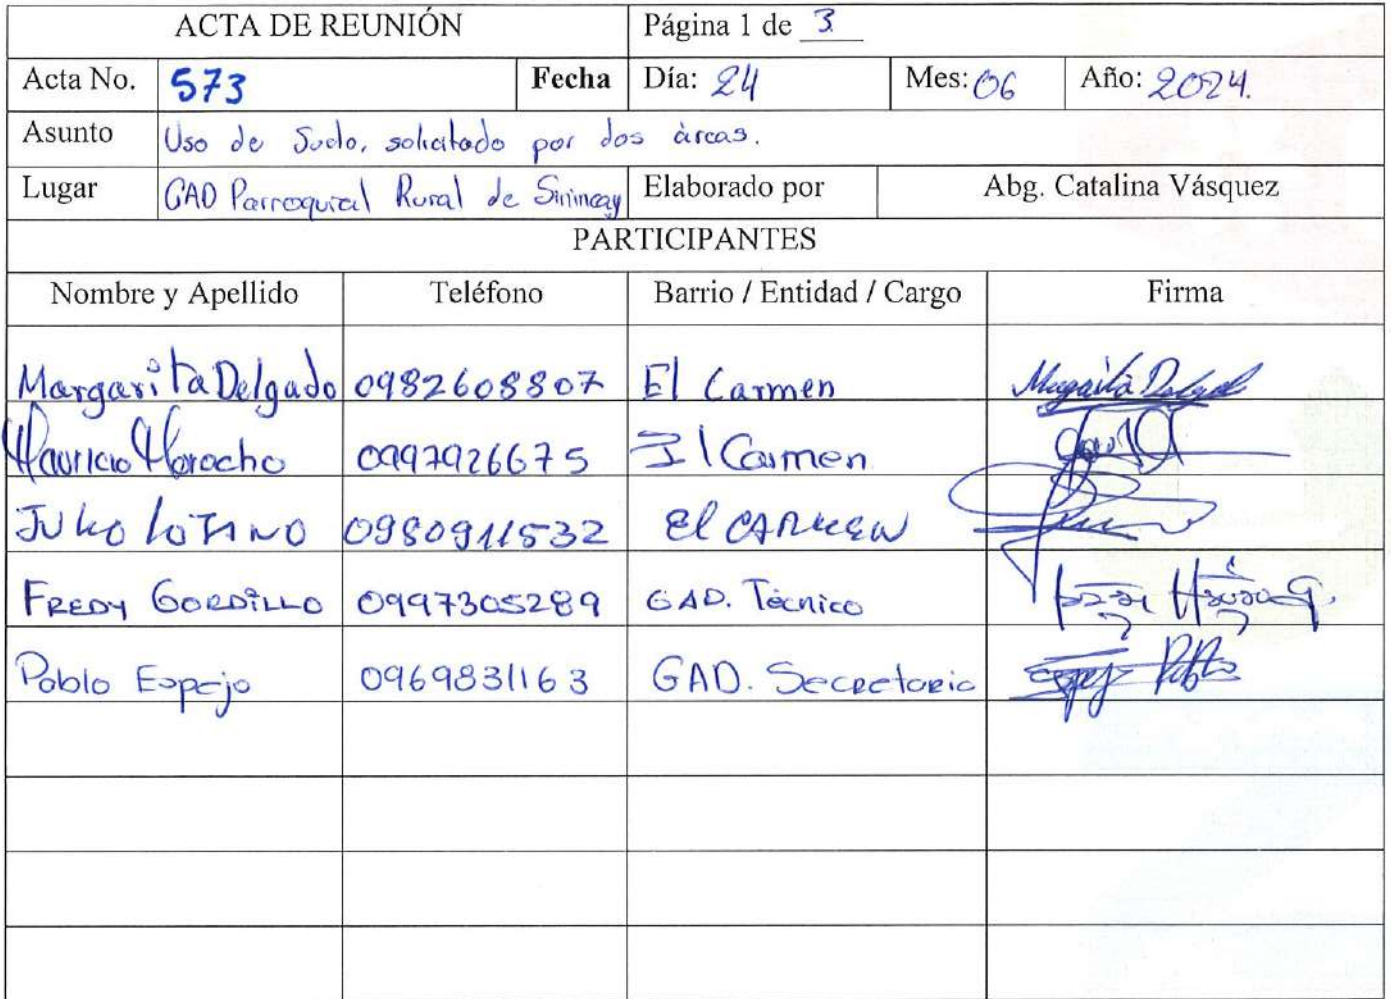 ACTA DE REUNIÓN Página 1 de 3
Acta No. 573 Fecha Día: 24 Mes: 06 Año: 2024.
Asunto Uso de Suelo, solicitado por dos àreas.
Lugar GAD Parroquial Rural de Sinincay Elaborado por Abg. Catalina Vásquez
PARTICIPANTES
Nombre y Apellido Teléfono Barrio / Entidad / Cargo Firma
Margarita Delgado 0982608807 El Carmen Margarita Delgado
Mauricio Morocho 0997926675 El Carmen
JULIO LOTANO 0980911532 El CARMEN
FREDY GORDILLO 0997305289 GAD. Tècnico
Pablo Espejo 0969831163 GAD. Secretario Espejo Pablo